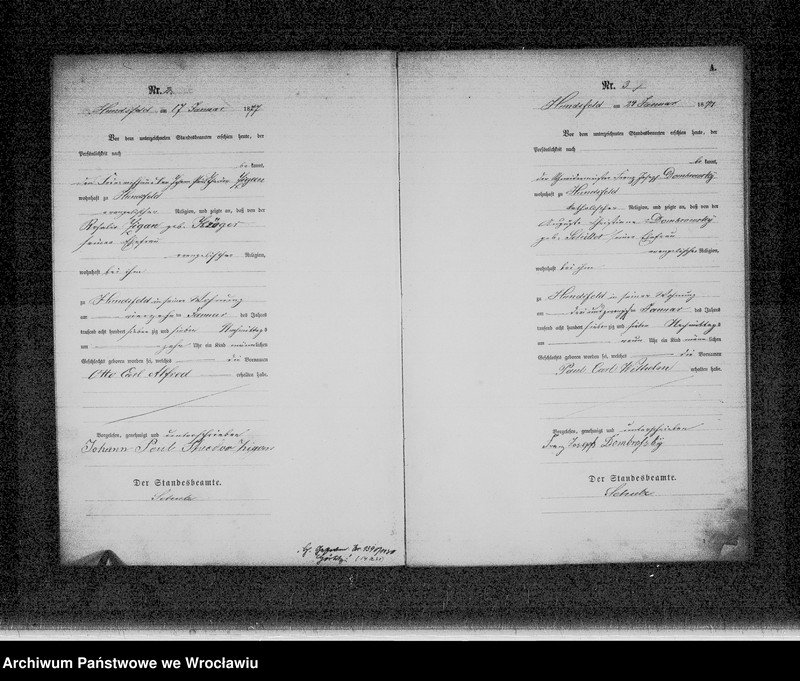 Nr. 2.
Hundsfeld am 17 Januar 1877
Vor dem unterzeichneten Standesbeamten erschien heute, der
Persönlichkeit nach
be kannt,
Johann Paul Theodor Zigan
wohnhaft zu Hundsfeld
evangelischer Religion, und zeigte an, daß von der
Rosalie Zigan geb. Krüger
seiner Ehefrau
evangelischer Religion,
wohnhaft bei ihm
zu Hundsfeld in seiner Wohnung
am vierzehn Januar des Jahres
tausend acht hundert siebenzig und sieben Nachmittags
um zehn Uhr ein Kind männlichen
Geschlechts geboren worden sei, welches die Vornamen
Otto Carl Alfred erhalten habe.
Vorgelesen, genehmigt und unterschrieben
Johann Paul Theodor Zigan
Der Standesbeamte.
Schulz
A.
Nr. 3.
Hundsfeld am 24 Januar 1877
Vor dem unterzeichneten Standesbeamten erschien heute, der
Persönlichkeit nach
be kannt,
der Franz Joseph Dombrowsky
wohnhaft zu Hundsfeld
katholischer Religion, und zeigte an, daß von der
Auguste Christiane Dombrowsky
geb. Schiller seiner Ehefrau
evangelischer Religion,
wohnhaft bei ihm
zu Hundsfeld in seiner Wohnung
am drei und zwanzigsten Januar des Jahres
tausend acht hundert siebenzig und sieben Nachmittags
um neun Uhr ein Kind männlichen
Geschlechts geboren worden sei, welches die Vornamen
Paul Carl Wilhelm erhalten habe.
Vorgelesen, genehmigt und unterschrieben
Franz Joseph Dombrofzky
Der Standesbeamte.
Schulz
Archiwum Państwowe we Wrocławiu